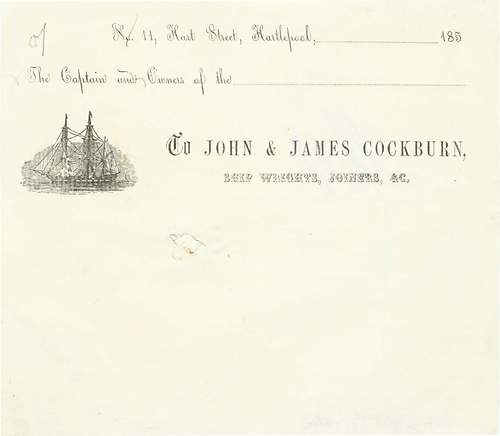 of
No 11, Hart Street, Hartlepool, 185
The Captain and Owners of the
To JOHN & JAMES COCKBURN,
SHIP WRIGHTS, JOINERS, &C.